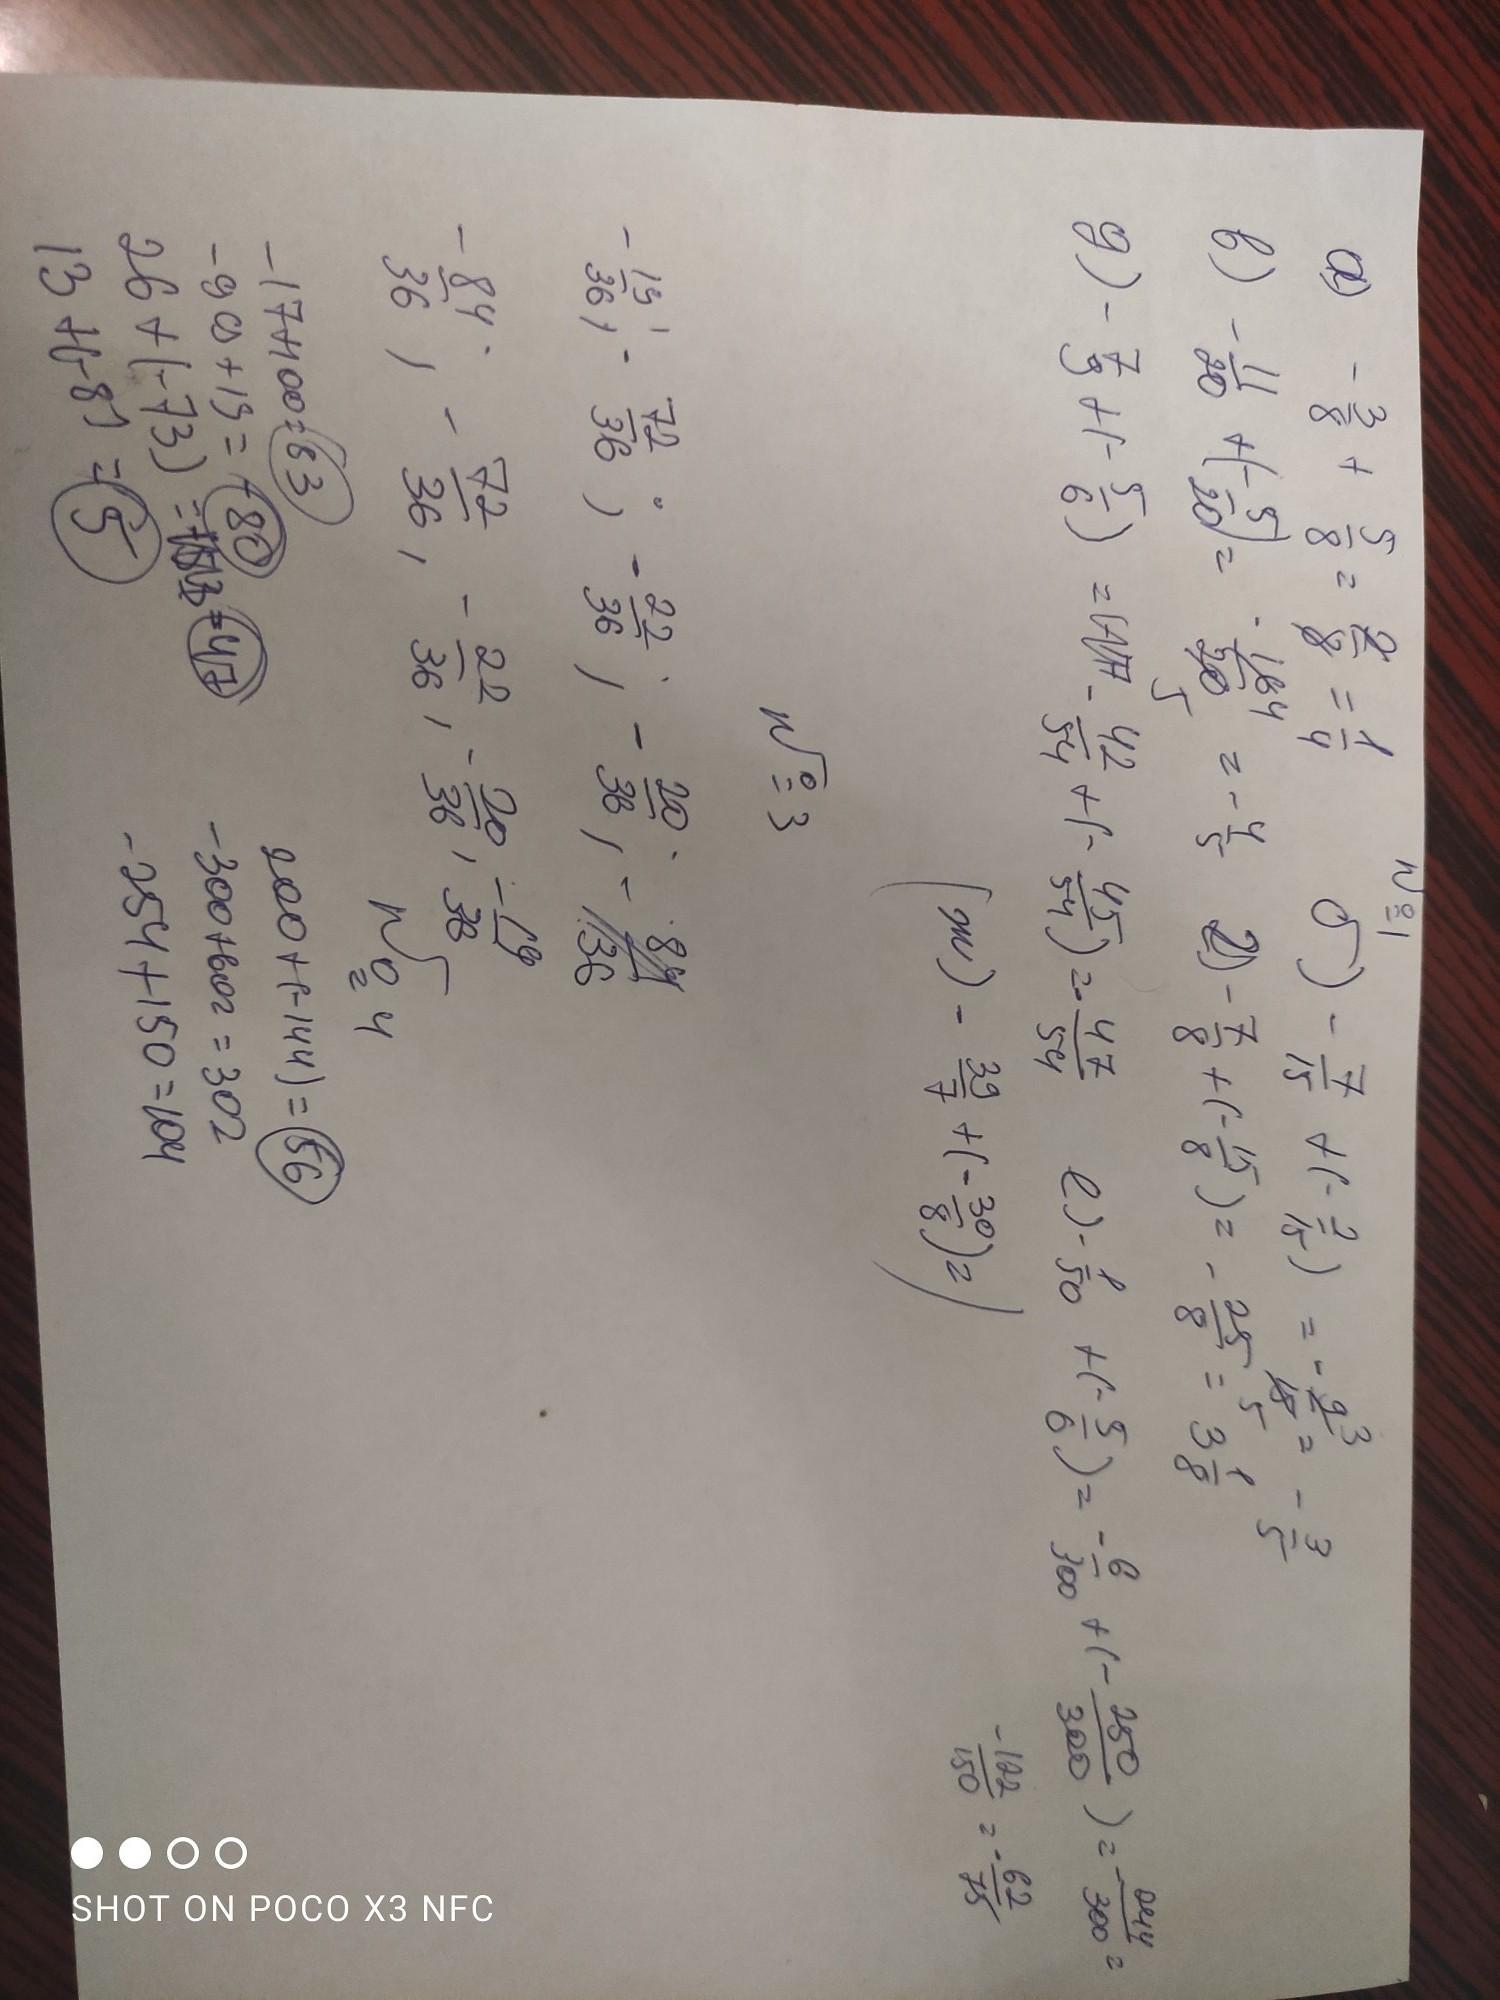 №1
а) - 3/8 + 5/8 = 2/8 = 1/4 б) - 7/15 + (- 2/15) = - 9/15 = - 3/5
в) - 11/20 + (- 5/20) = - 4/5 г) - 7/8 + (- 15/8) = - 25/8 = 3 1/8
д) - 7/9 + (- 5/6) = - 42/54 + (- 45/54) = - 47/54 е) - 1/50 + (- 5/6) = - 6/300 + (- 250/300) = - 244/300 =
- 122/150 = - 62/75
(ж) - 39/7 + (- 30/8) =)
№3
- 19/36, - 72/36, - 22/36, - 20/36, - 84/36
- 84/36, - 72/36, - 22/36, - 20/36, - 19/36
№4
-17+100=83 200+(-144)=56
-90+19= 80 -300+602=302
26+(-73)= =47 -254+150=104
13+(-8)=5
SHOT ON POCO X3 NFC